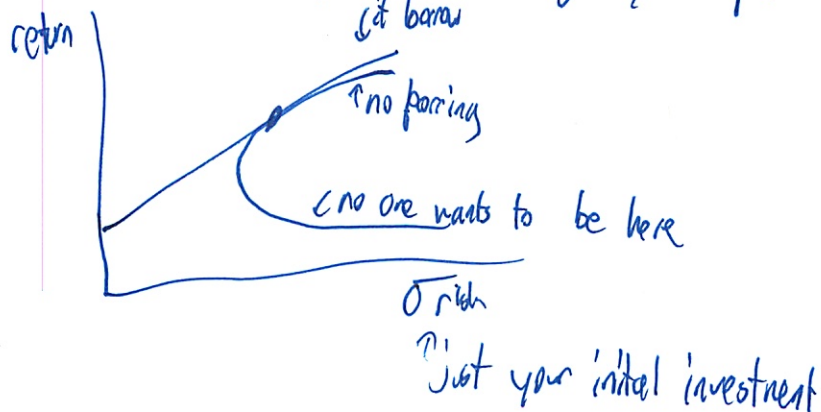 return
↓it borrow
↑no borring
↙no one wants to be here
σ risk
↑just your initial investment